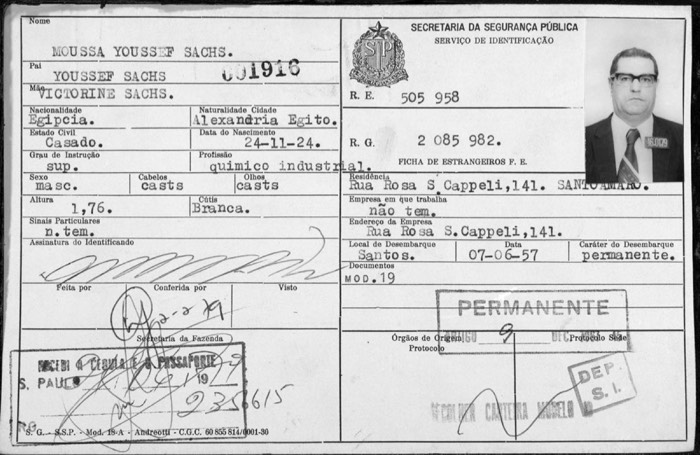 Nome
MOUSSA YOUSSEF SACHS.
Pai
YOUSSEF SACHS 001916
Mãe
VICTORINE SACHS.
Nacionalidade Naturalidade Cidade
Egipcia. Alexandria Egito.
Estado Civil Data do Nascimento
Casado. 24-11-24.
Grau de Instrução Profissão
sup. quimico industrial.
Sexo Cabelos Olhos
masc. casts casts
Altura Cútis
1,76. Branca.
Sinais Particulares
n.tem.
Assinatura do Identificando
Feita por Conferida por Visto
Secretaria da Fazenda
RECEBI A CEDULA E O PASSAPORTE
S. PAULO 19
235615
RG
S. G. - S.S.P. - Mod. 18-A - Andreotti - C.G.C. 60 855 814/0001-30
SECRETARIA DA SEGURANÇA PÚBLICA
SERVIÇO DE IDENTIFICAÇÃO
SP
R. E. 505 958
R. G. 2 085 982.
FICHA DE ESTRANGEIROS F. E.
Residência
Rua Rosa S Cappeli,141. SANTO AMARO.
Empresa em que trabalha
não tem.
Endereço da Empresa
Rua Rosa S.Cappeli,141.
Local de Desembarque Data Caráter do Desembarque
Santos. 07-06-57 permanente.
Documentos
MOD.19
PERMANENTE
ARTIGO 9
Órgãos de Origem Protocolo Sede
Protocolo
DEP.
S. I.
RECOLHER CARTEIRA MODELO